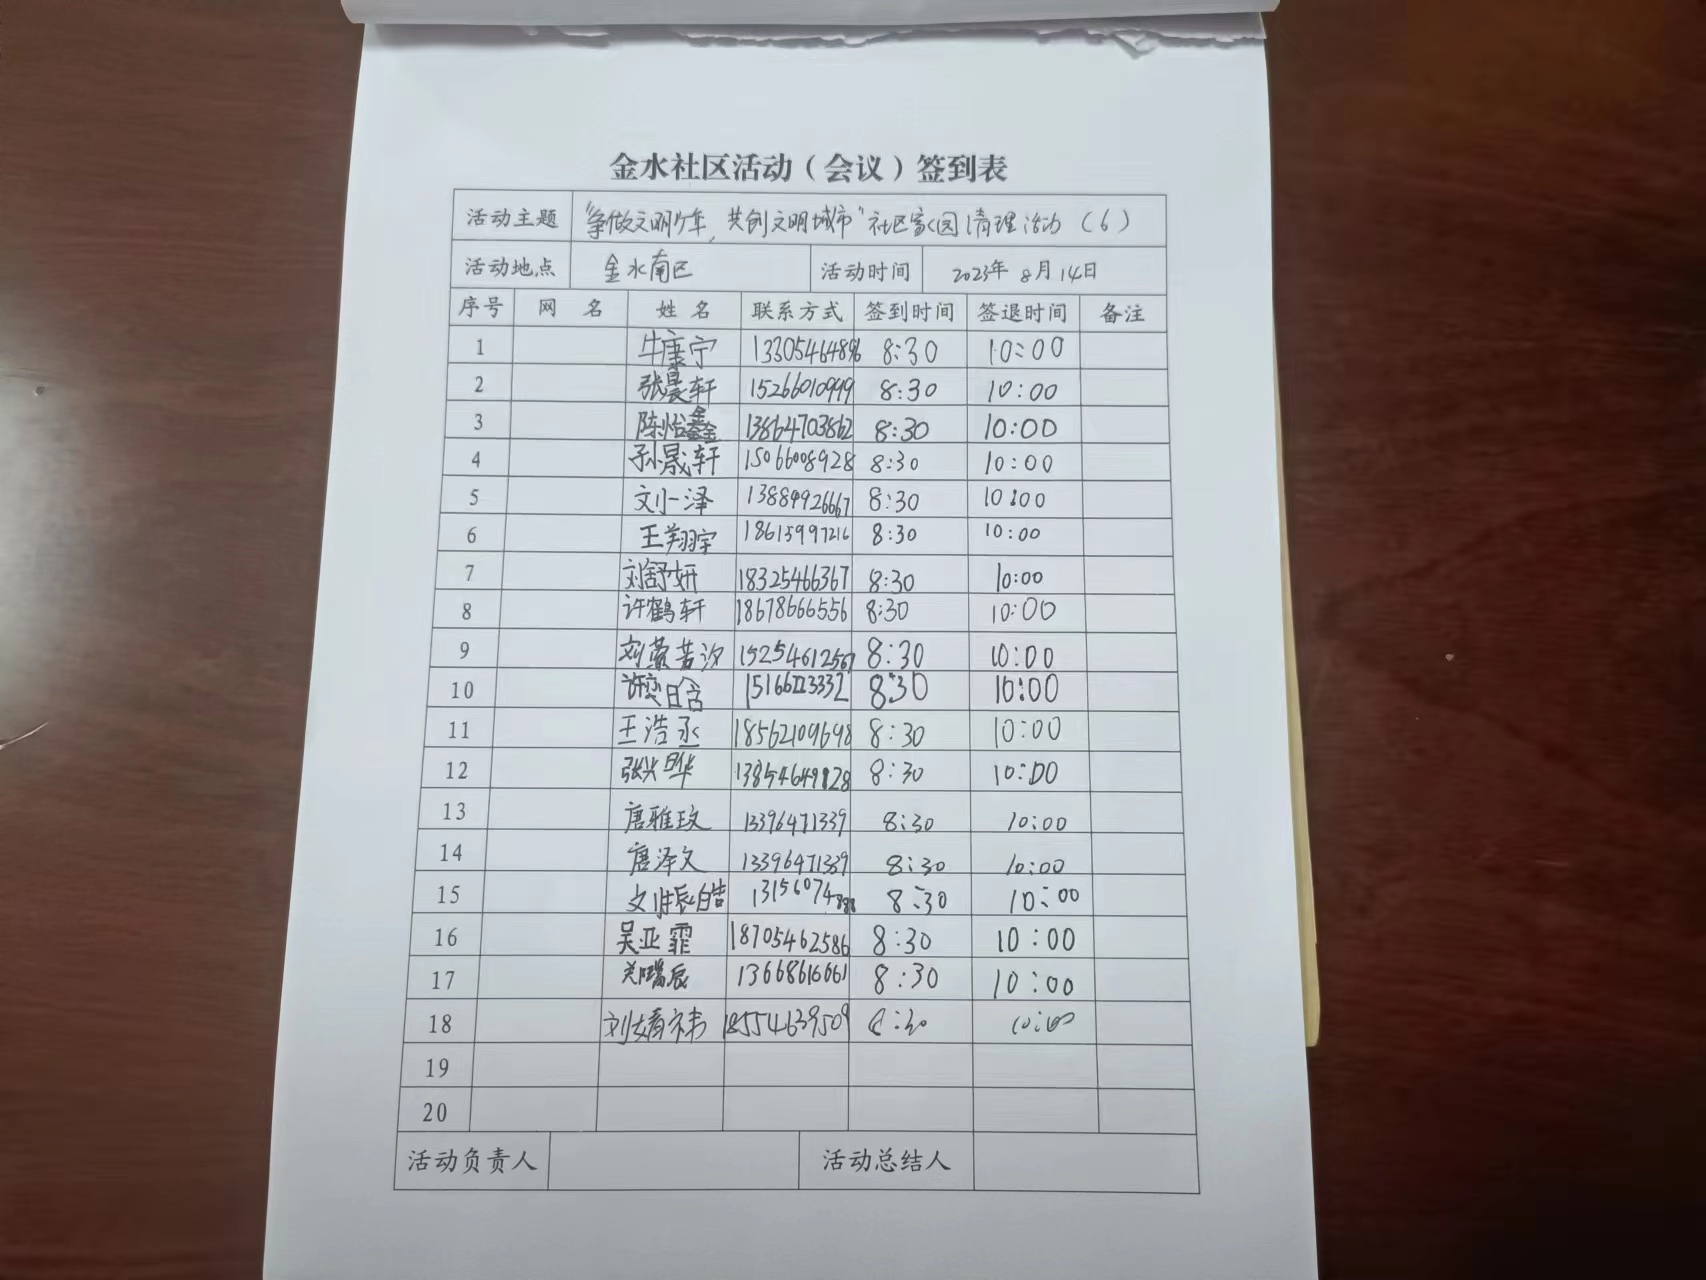 金水社区活动（会议）签到表
活动主题 “争做文明少年，共创文明城市”社区家园清理活动（6）
活动地点 金水南区 活动时间 2023年8月14日
序号 网 名 姓 名 联系方式 签到时间 签退时间 备注
1 牛康宁 13305464896 8:30 10:00
2 张晨轩 15266010999 8:30 10:00
3 陈怡鑫 13864703862 8:30 10:00
4 孙晟轩 15066008928 8:30 10:00
5 刘一泽 13889926667 8:30 10:00
6 王翔宇 18615997216 8:30 10:00
7 刘舒妍 18325466367 8:30 10:00
8 许鹤轩 18678666556 8:30 10:00
9 15254612567 8:30 10:00
10 8:30 10:00
11 王浩丞 18562109698 8:30 10:00
12 8:30 10:00
13 唐雅玟 13396471339 8:30 10:00
14 唐泽文 13396471339 8:30 10:00
15 8:30 10:00
16 吴亚霏 18705462586 8:30 10:00
17 13668616661 8:30 10:00
18 18554639509 8:30 10:00
19
20
活动负责人 活动总结人